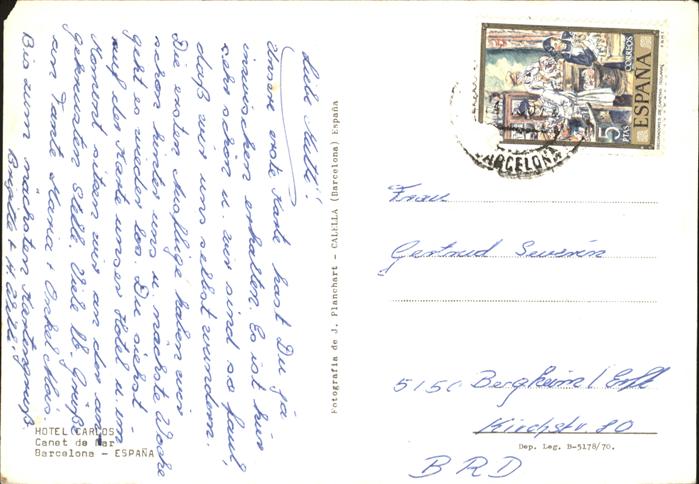 Liebe Mutti!
Unsre erste Karte hast Du ja
inzwischen erhalten. Es ist hier
sehr schön u. wir sind so faul,
daß wir uns selbst wundern.
Die ersten Ausflüge haben wir
schon hinter uns u. nächste Woche
geht es wieder los. Du siehst
auf der Karte unser Hotel u. im
Moment sitzen wir an der an-
gekreuzten Stelle. Viele lb. Grüße
an Tante Maria + Onkel Alois.
Bis zum nächsten Kartengruß
Brigitte + H. Willi
HOTEL CARLOS
Canet de Mar
Barcelona - ESPAÑA
Fotografía de J. Planchart - CALELLA (Barcelona) España
CORREOS
ESPAÑA
PTAS
BARCELONA
Frau
Gertrud Severin
5150 Bergheim/Erft
Kirchstr. 20
Dep. Leg. B-5178/70.
BRD